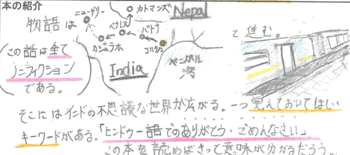 本の紹介
物語は
ニューデリー
カトマンズ
Nepal
ベナレス
パトナ
カジュラホ
コルカタ
と進む。
この話は全て
ノンフィクション
である。
India
ベンガル
湾
そこにはインドの不思議な世界が広がる。一つ覚えておいてほしい
キーワードがある。「ヒンドゥー語でのありがとう・ごめんなさい」
この本を読めばきって意味が分かるだろう。